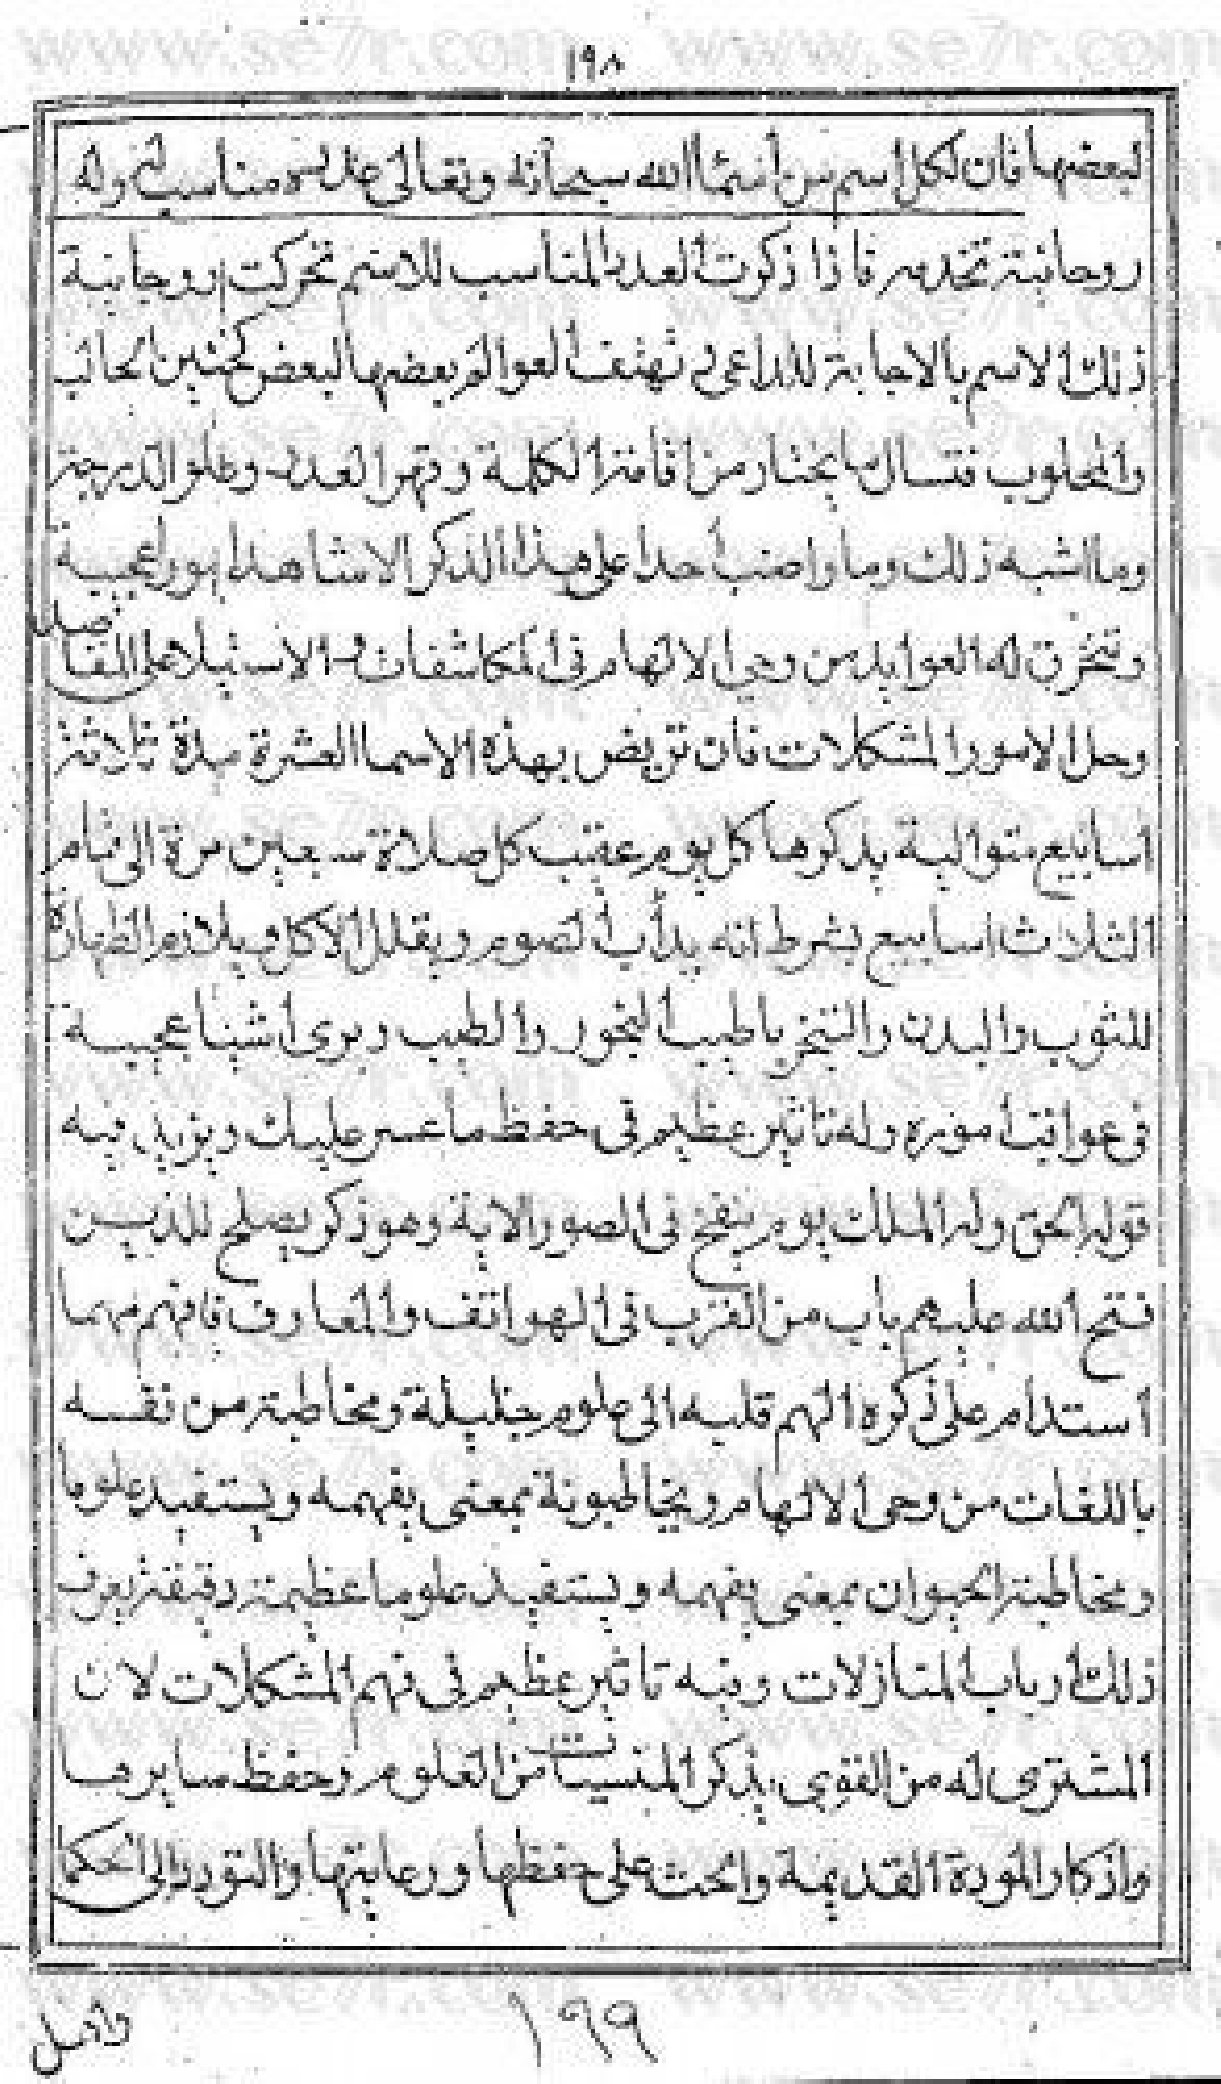 ١٩٨
لبعضها فان لكل اسم من أسماء الله سبحانه وتعالى عدد مناسب وله
روحانية تخدمه فاذا ذكرت العدد المناسب للاسم تحركت روحانية
ذلك الاسم بالاجابة للداعي تهتف العوالم بعضها لبعض
والمطلوب فتسال ما تختار من اقامة الكلمة وقهر العدو وعلو الدرجة
وما اشبه ذلك وما واضب أحدا على هذا الذكر الا شاهد امورا عجيبة
وتنخرق له العوايد من وحي الالهام في المكاشفات والاستيلا على المقاصد
وحل الامور المشكلات فان تريض بهذه الاسما العشرة مدة ثلاثة
اسابيع متوالية يذكرها كل يوم عقيب كل صلاة سبعين مرة الى تمام
الثلاث اسابيع بشرط انه يدأب الصوم ويقلل الاكل ويلازم الطهارة
للثوب والبدن والتبخر باطيب البخور والطيب ويرى أشيا عجيبة
في عواقب أموره وله تاثير عظيم في حفظ ما عسر عليك ويزيد فيه
قوله الحق وله الملك يوم ينفخ في الصور الاية وهو ذكر يصلح للذين
فتح الله عليهم باب من القرب في الهواتف والمعارف فافهم مهما
استدام على ذكره الهم قلبه الى علوم جليلة ومخاطبة من نفسه
باللغات من وحي الالهام ويخاطبونة بمعنى يفهمه ويستفيد علوما
ومخاطبة الحيوان بمعنى يفهمه ويستفيد علوما عظيمة دقيقة يعرف
ذلك أرباب المنازلات وفيه تاثير عظيم في فهم المشكلات لان
المشتري له من القوى يذكر المنسيات من العلوم وحفظ سايرها
واذكار المودة القديمة والحث على حفظها ورعايتها والتودد الى الحكما
١٩٩